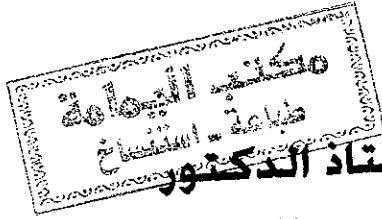 مكتب اليمامة
طباعة - استنساخ
ستاذ الدكتور